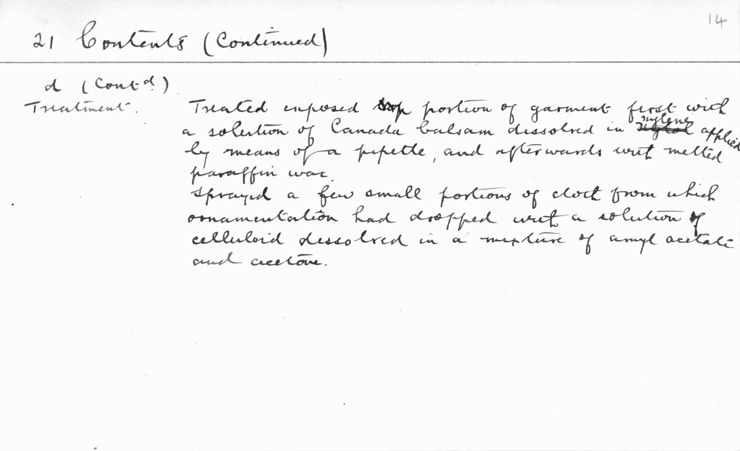 14
21 Contents (Continued)
d (Contd.)
Treatment. Treated exposed top portion of garment first with
a solution of Canada balsam dissolved in xylene applied
by means of a pipette, and afterwards with melted
paraffin wax.
Sprayed a few small portions of cloth from which
ornamentation had dropped with a solution of
celluloid dissolved in a mixture of amyl acetate
and acetone.